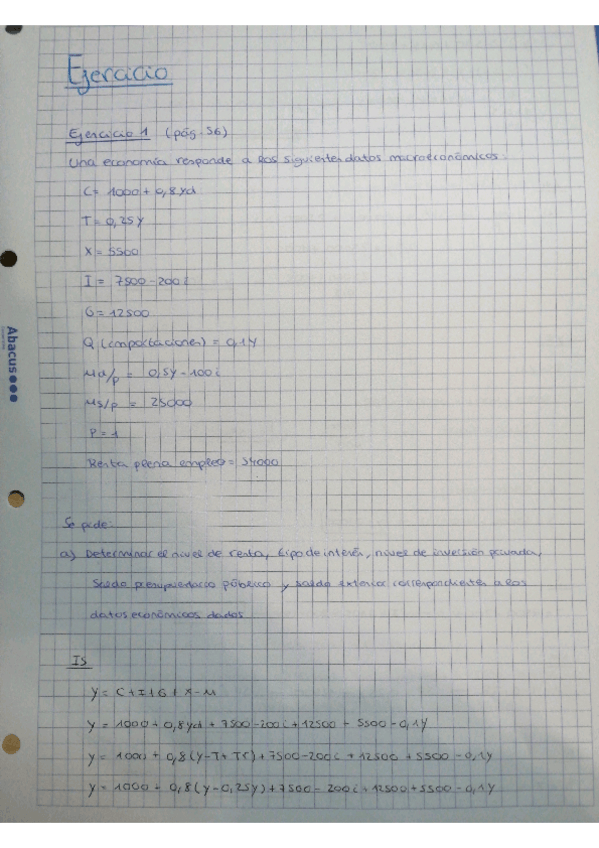 Ejercicio
Ejercicio 1 (pág. 56)
Una economía responde a los siguientes datos macroeconómicos:
C = 1000 + 0,8 Yd
T = 0,25 Y
X = 5500
I = 7500 - 200 i
G = 12500
Q (importaciones) = 0,1 Y
Md/p = 0,5Y - 100 i
Ms/p = 25000
P = 1
Renta plena empleo = 54000
Se pide:
a) Determinar el nivel de renta, tipo de interés, nivel de inversión privada,
saldo presupuestario público y saldo exterior correspondientes a los
datos económicos dados
IS
Y = C + I + G + X - M
Y = 1000 + 0,8 Yd + 7500 - 200 i + 12500 + 5500 - 0,1Y
Y = 1000 + 0,8 (Y - T + Tr) + 7500 - 200 i + 12500 + 5500 - 0,1Y
Y = 1000 + 0,8 (Y - 0,25Y) + 7500 - 200 i + 12500 + 5500 - 0,1Y
Abacus